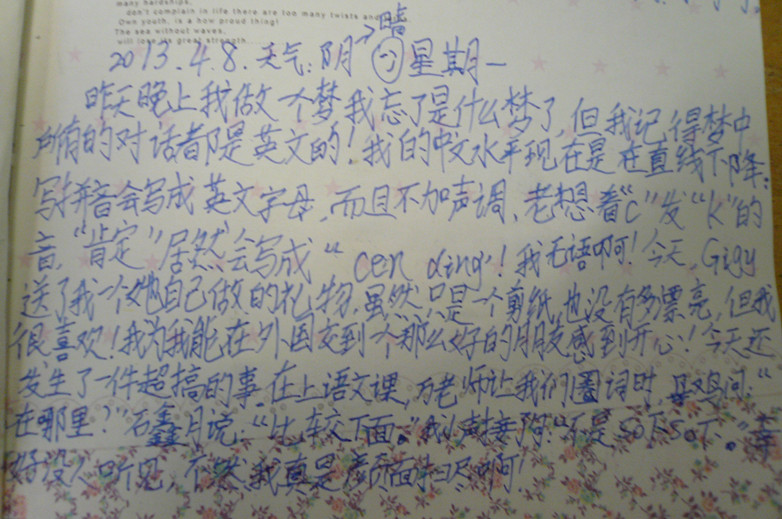 many hardships,
don't complain in life there are too many twists and
Own youth, is a how proud thing!
The sea without waves,
will lose its great strength
暗
2013.4.8.天气:阴→星期一
昨天晚上我做一个梦我忘了是什么梦了,但我记得梦中
所有的对话都是英文的!我的中文水平现在是在直线下降:
写拼音会写成英文字母,而且不加声调,老想着“c”发“k”的
音,“肯定”居然会写成“cen ding”!我无语啊!今天,Gigy
送了我一个她自己做的礼物,虽然只是一个剪纸,也没有多漂亮,但我
很喜欢!我为我能在外国交到个那么好的朋友感到开心!今天还
发生了一件超搞的事,在上语文课,万老师让我们圈词时,问:“
在哪里?”石鑫月说:“比较下面。”我小声接了句:“不是so下so下。”幸
好没人听见,不然,我真是颜面扫尽啊!